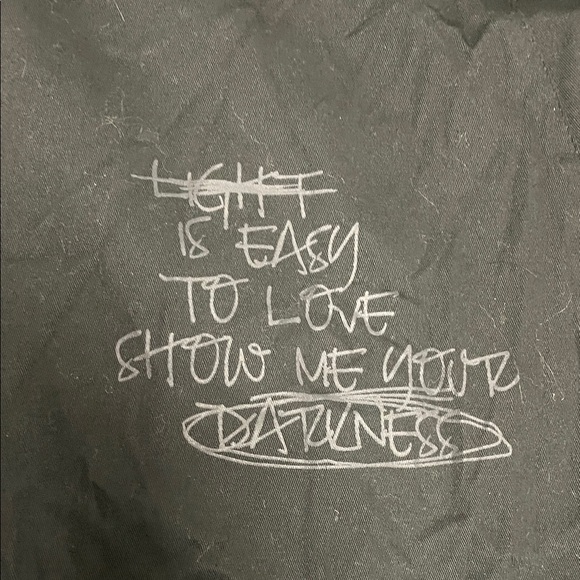 LIGHT
IS EASY
TO LOVE
SHOW ME YOUR
DARKNESS